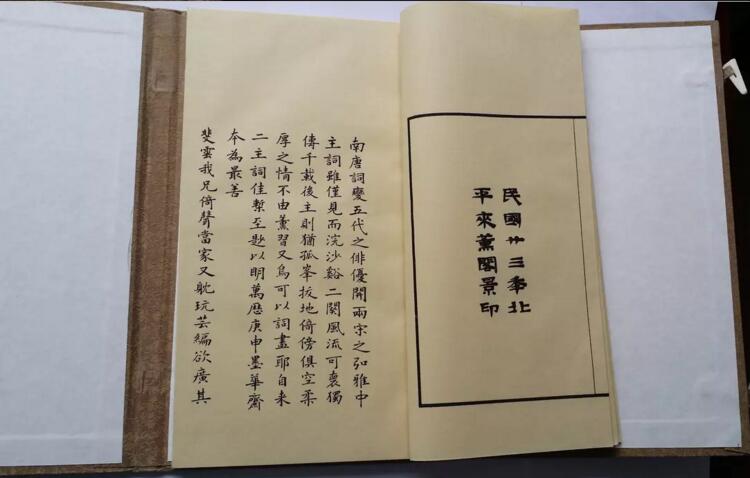 民國卅三年北
平來薰閣景印
南唐詞變五代之俳優開兩宋之弘雅中
主詞雖僅見而浣沙谿二闋風流可裛獨
傳千載後主則猶孤峯拔地倚傍俱空柔
厚之情不由薰習又烏可以詞盡耶自来
二主詞佳槧至尟以明萬歷庚申墨華齋
本為最善
斐雲我兄倚聲當家又躭玩芸編欲廣其